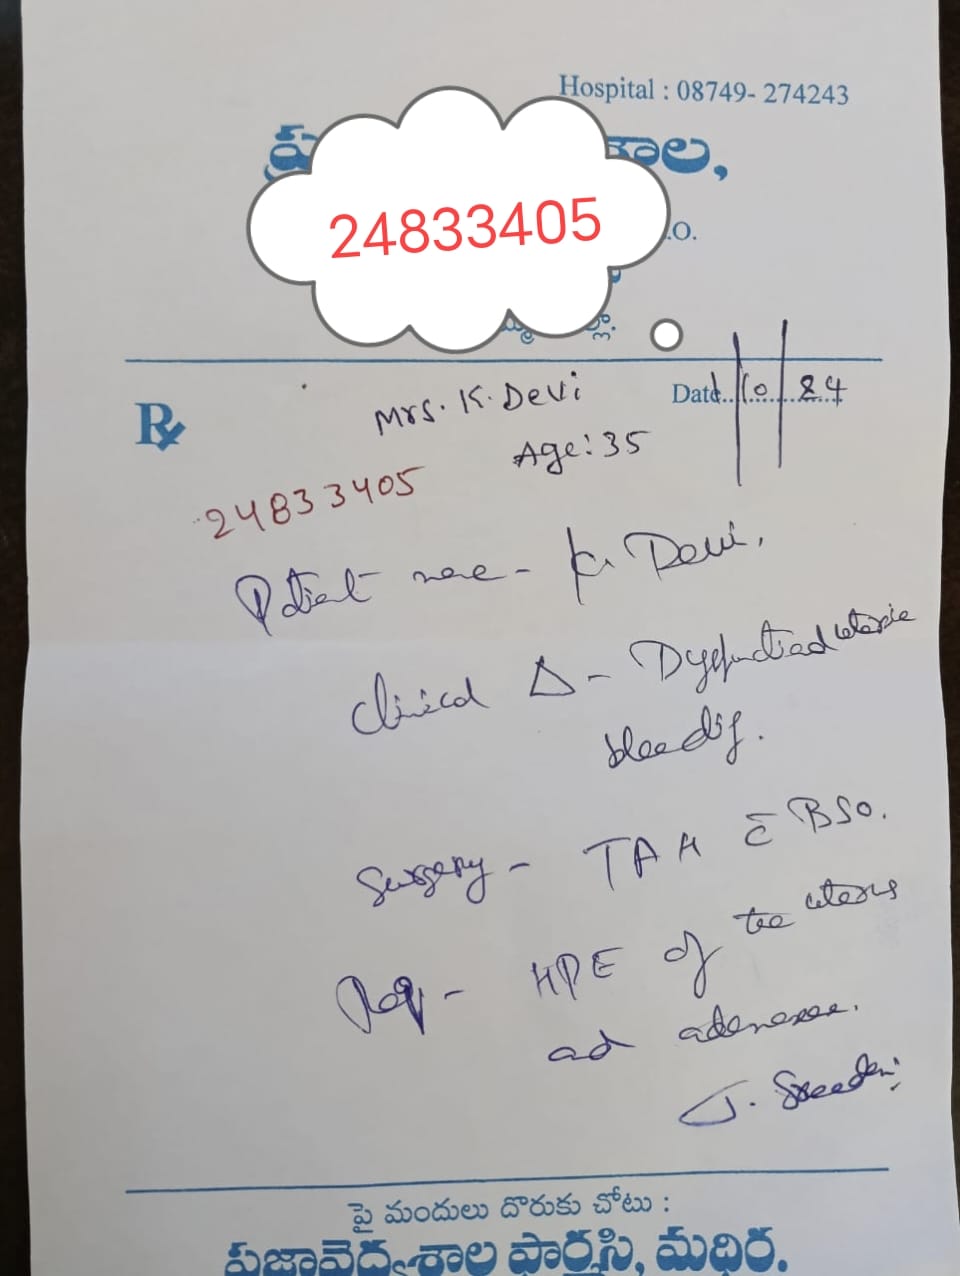 Hospital : 08749- 274243
24833405
.O.
Mrs. K. Devi
Date 1/10/24
Age: 35
24833405
Patient name - K. Devi.
Clinical Δ - Dysfunctional uterine
bleeding.
Surgery - TAH c̄ BSO.
Req - HPE of the uterus
and adenexae.
J. Sreedevi
పై మందులు దొరుకు చోటు :
ప్రజావైద్యశాల ఫార్మసి, మధిర.